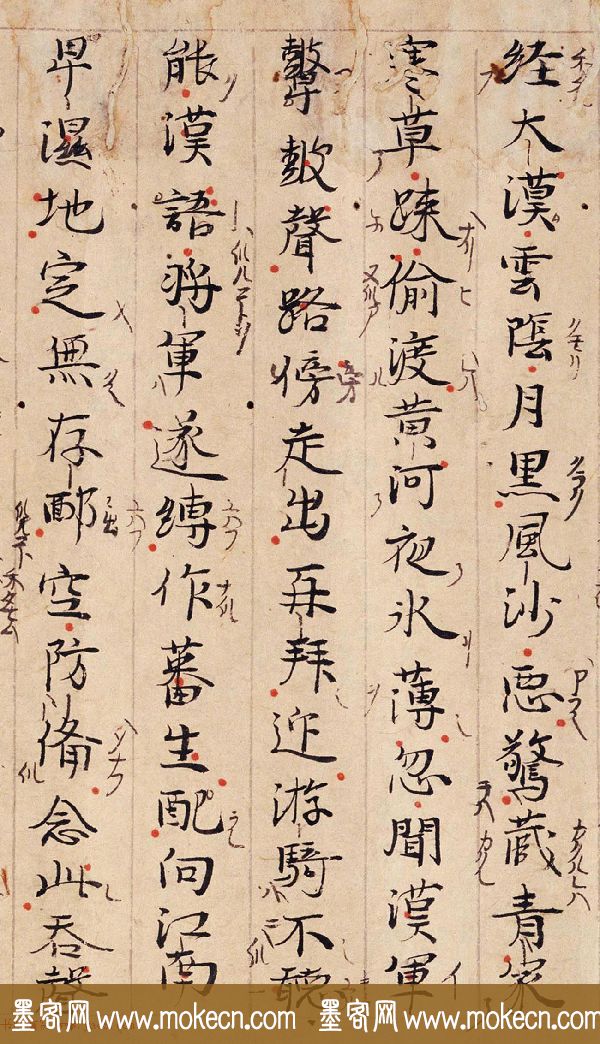 経大漠雲陰月黒風沙悪驚蔵青冢
寒草踈偷渡黄河夜氷薄忽聞漢軍
鼙皷聲路傍走出再拜迎游騎不聽
能漢語將軍遂縛作蕃生配向江南
卑濕地定無存卹空防俻念此吞聲
墨客网 www.mokecn.com 墨客网 www.mokecn.com